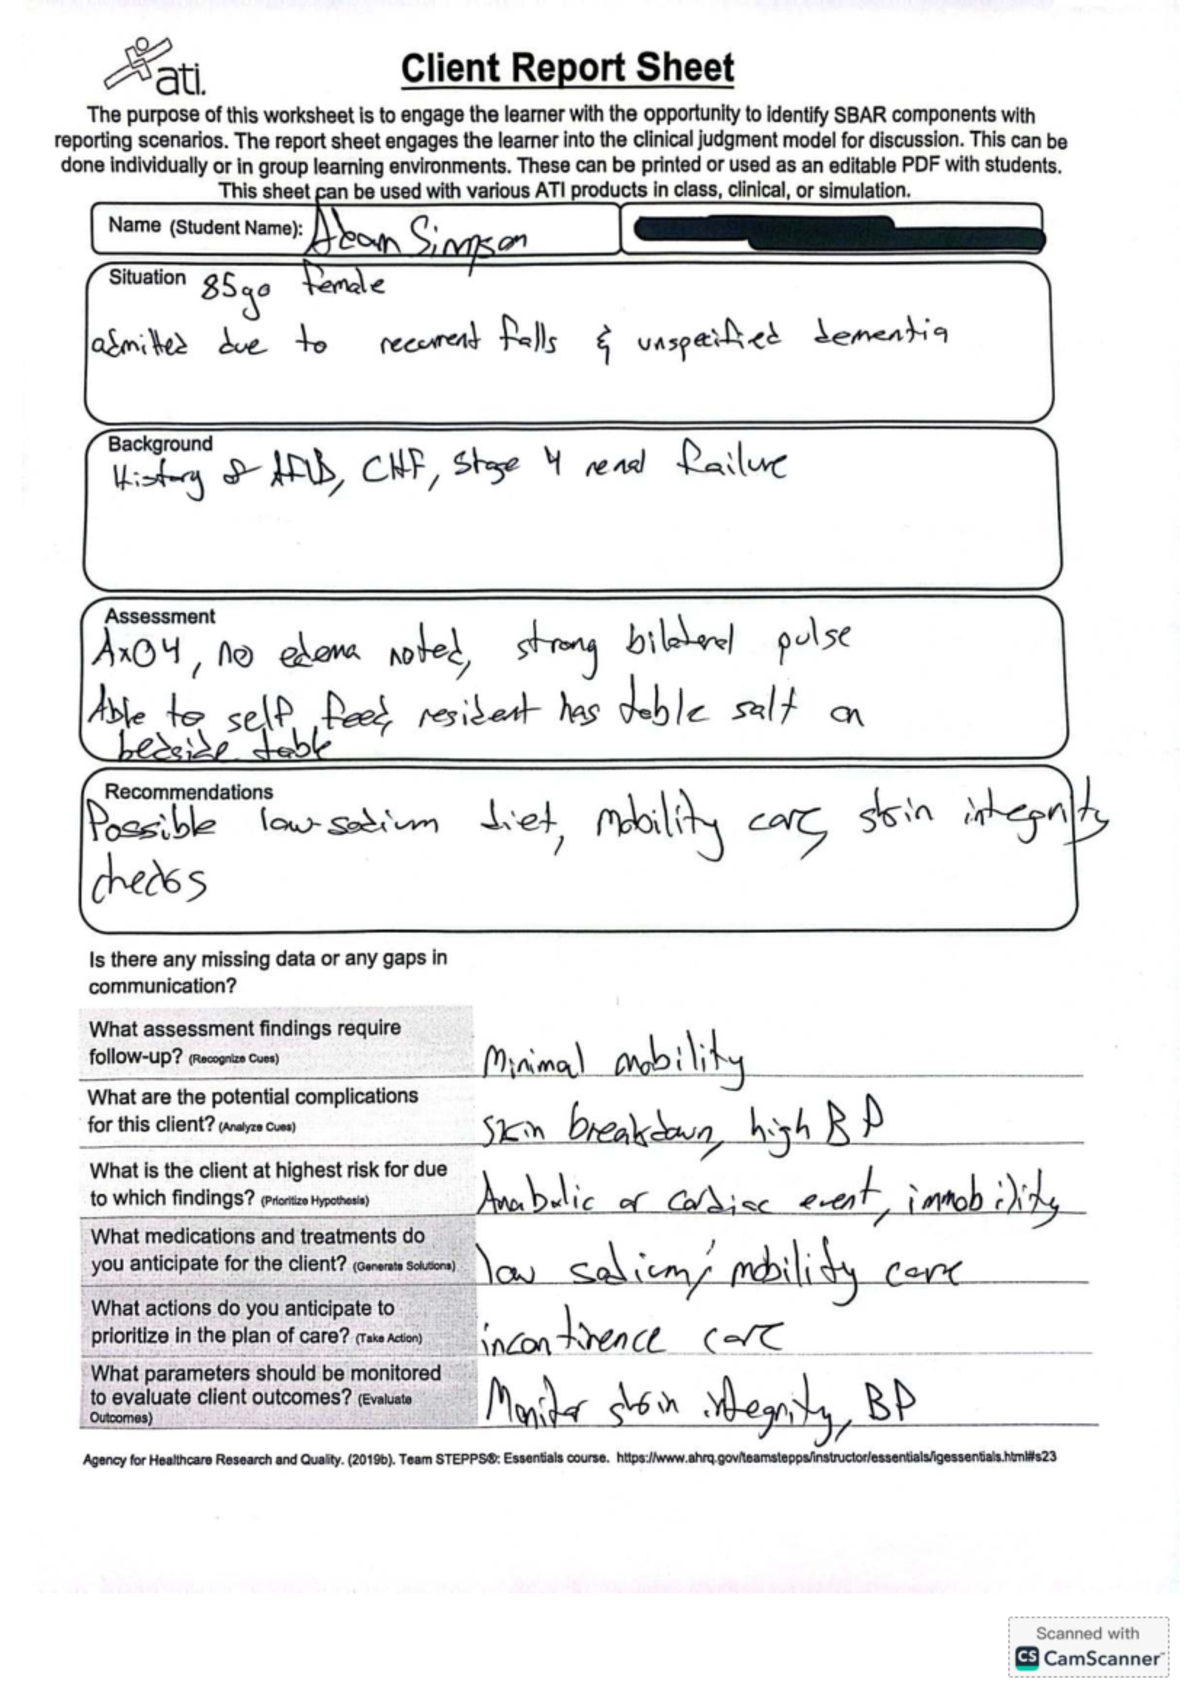 ati.
Client Report Sheet
The purpose of this worksheet is to engage the learner with the opportunity to identify SBAR components with
reporting scenarios. The report sheet engages the learner into the clinical judgment model for discussion. This can be
done individually or in group learning environments. These can be printed or used as an editable PDF with students.
This sheet can be used with various ATI products in class, clinical, or simulation.
Name (Student Name): Adam Simpson
Situation 85yo female
admitted due to recurrent falls & unspecified dementia
Background
History of AFIB, CHF, Stage 4 renal failure
Assessment
AxO4, no edema noted, strong bilateral pulse
Able to self feed, resident has table salt on
bedside table
Recommendations
Possible low-sodium diet, mobility care, skin integrity
checks
Is there any missing data or any gaps in
communication?
What assessment findings require
follow-up? (Recognize Cues) Minimal mobility
What are the potential complications
for this client? (Analyze Cues) Skin breakdown, high BP
What is the client at highest risk for due
to which findings? (Prioritize Hypothesis) Anabolic or cardiac event, immobility
What medications and treatments do
you anticipate for the client? (Generate Solutions) low sodium/mobility care
What actions do you anticipate to
prioritize in the plan of care? (Take Action) incontinence care
What parameters should be monitored
to evaluate client outcomes? (Evaluate
Outcomes) Monitor skin integrity, BP
Agency for Healthcare Research and Quality. (2019b). Team STEPPS®: Essentials course. https://www.ahrq.gov/teamstepps/instructor/essentials/igessentials.html#s23
Scanned with
CS CamScanner